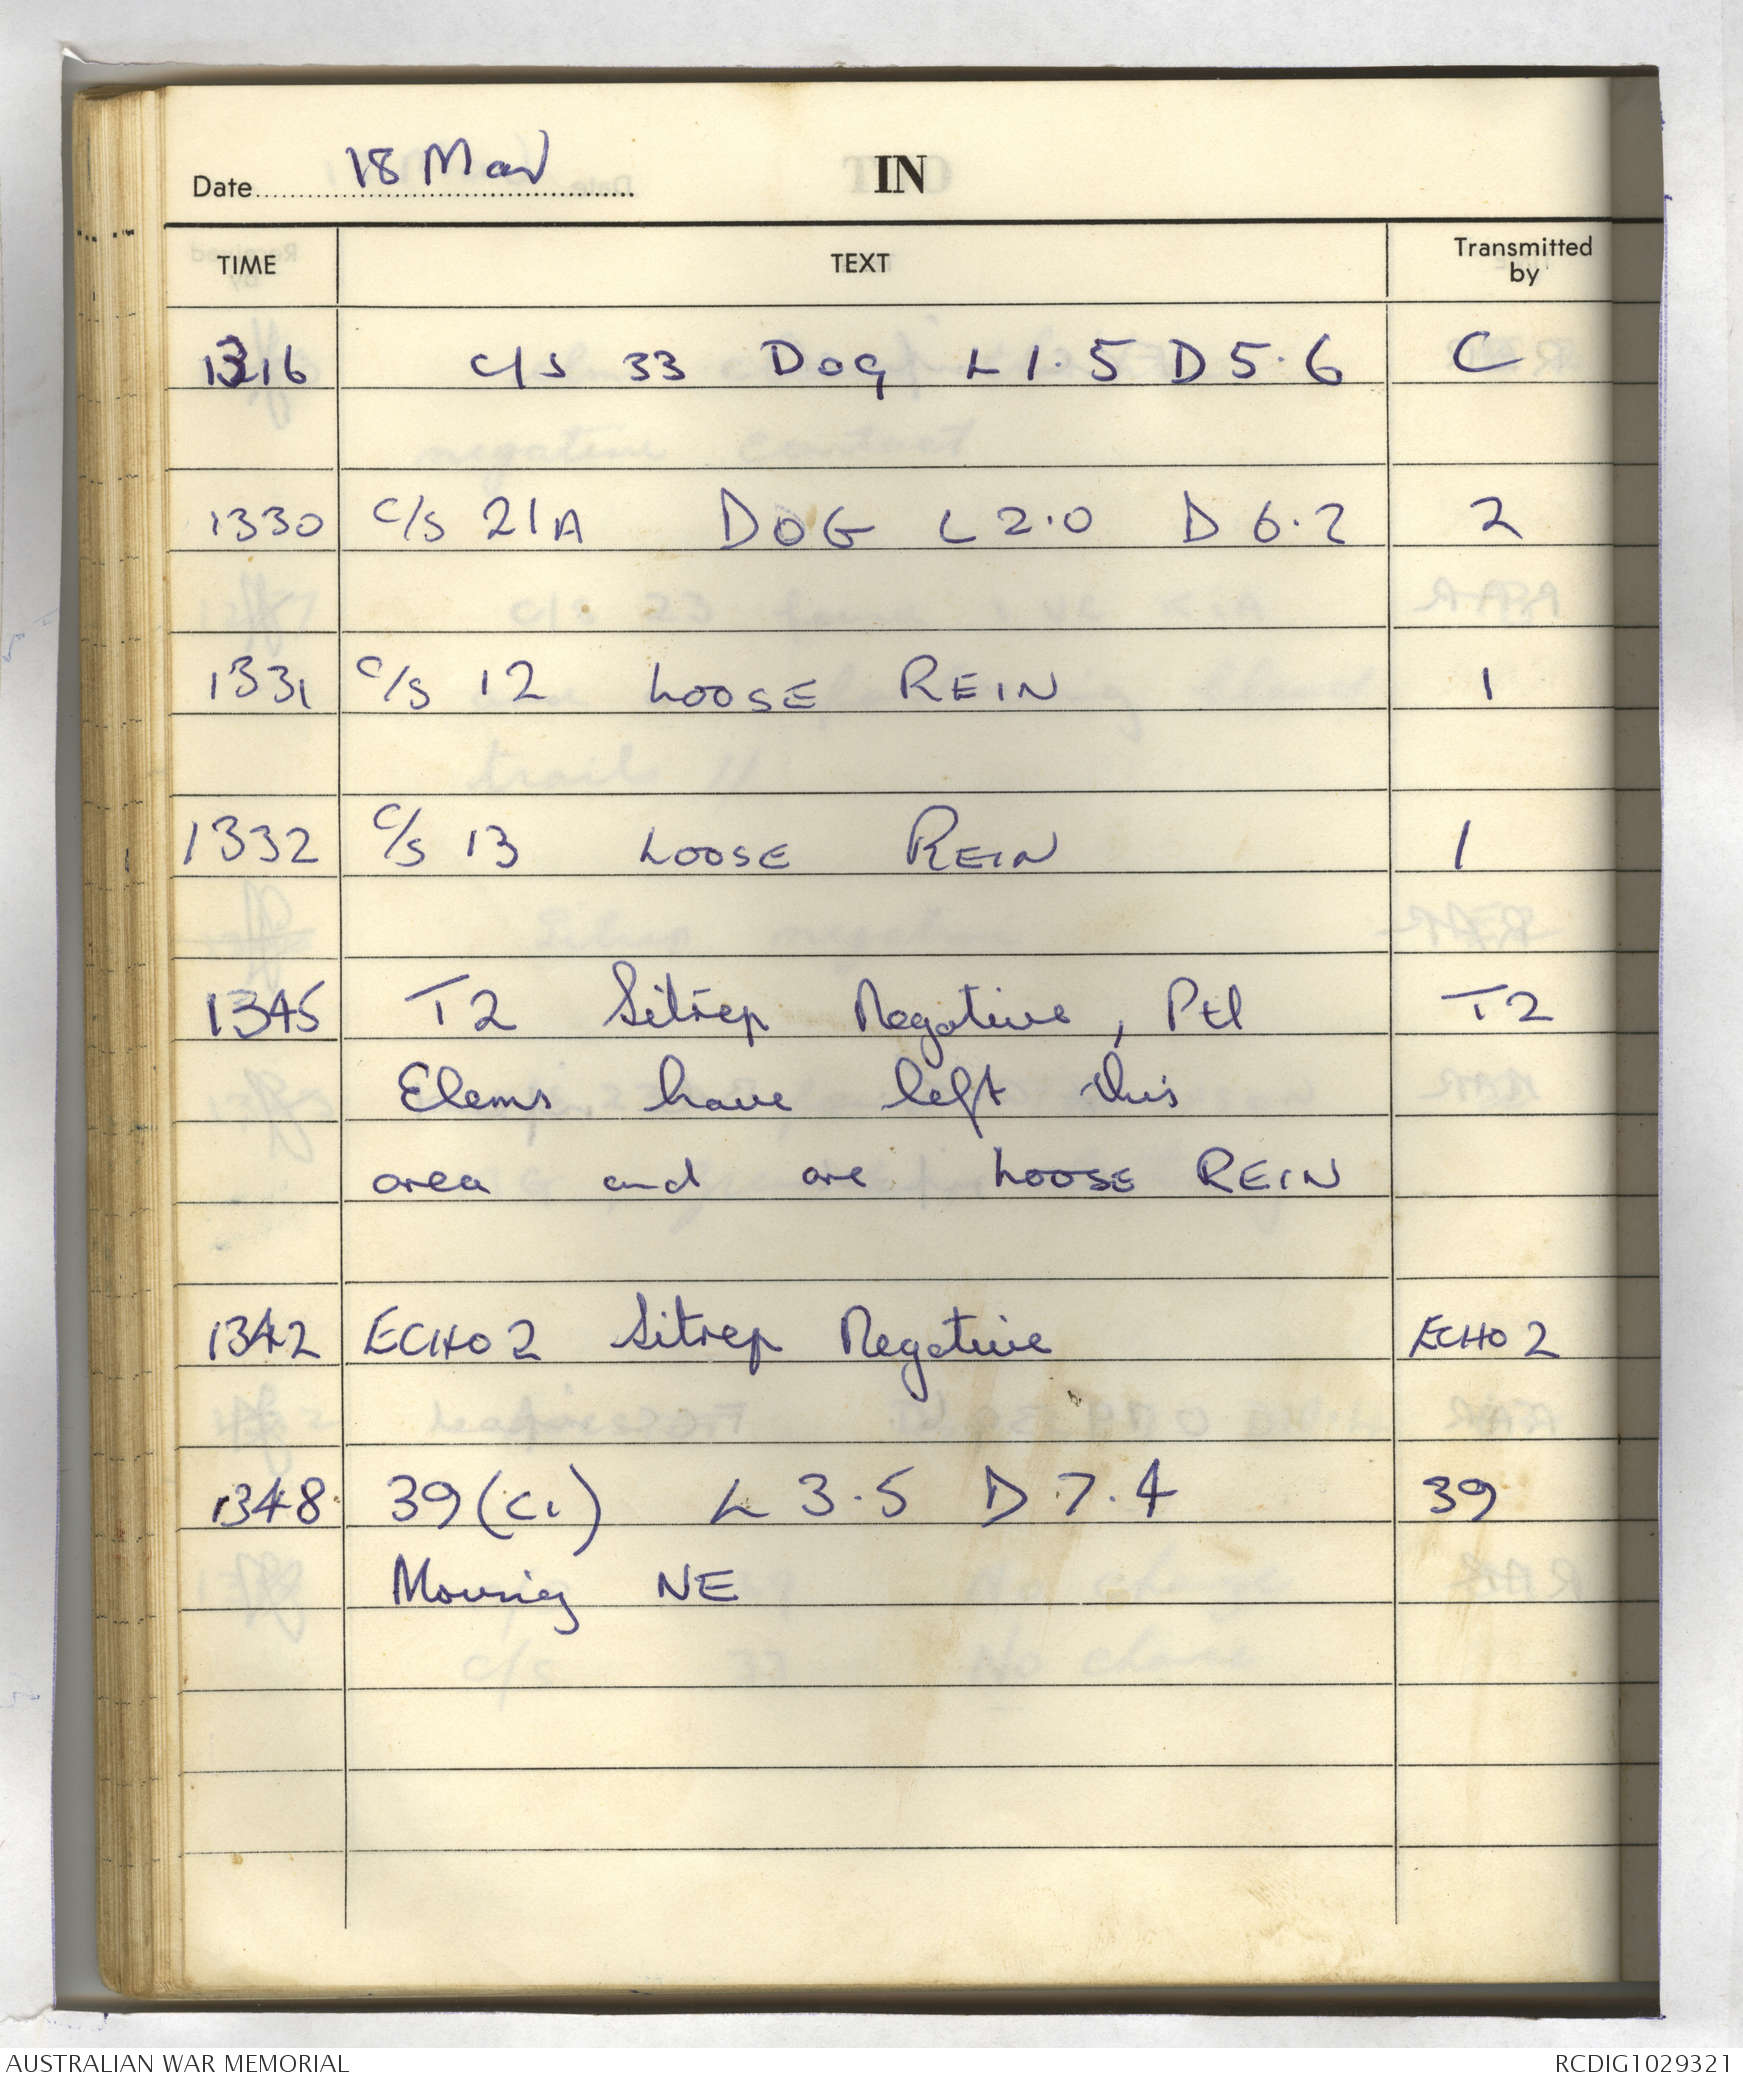 Date 18 Mar IN
TIME TEXT Transmitted by
1316 c/s 33 Dog L 1.5 D 5.6 C
1330 c/s 21A DOG L 2.0 D 6.2 2
1331 c/s 12 LOOSE REIN 1
1332 c/s 13 LOOSE REIN 1
1345 T2 Sitrep Negative, Ptl T2
Elems have left this
area and are LOOSE REIN
1342 ECHO 2 Sitrep Negative ECHO 2
1348 39 (C1) L 3.5 D 7.4 39
Moving NE
AUSTRALIAN WAR MEMORIAL RCDIG1029321